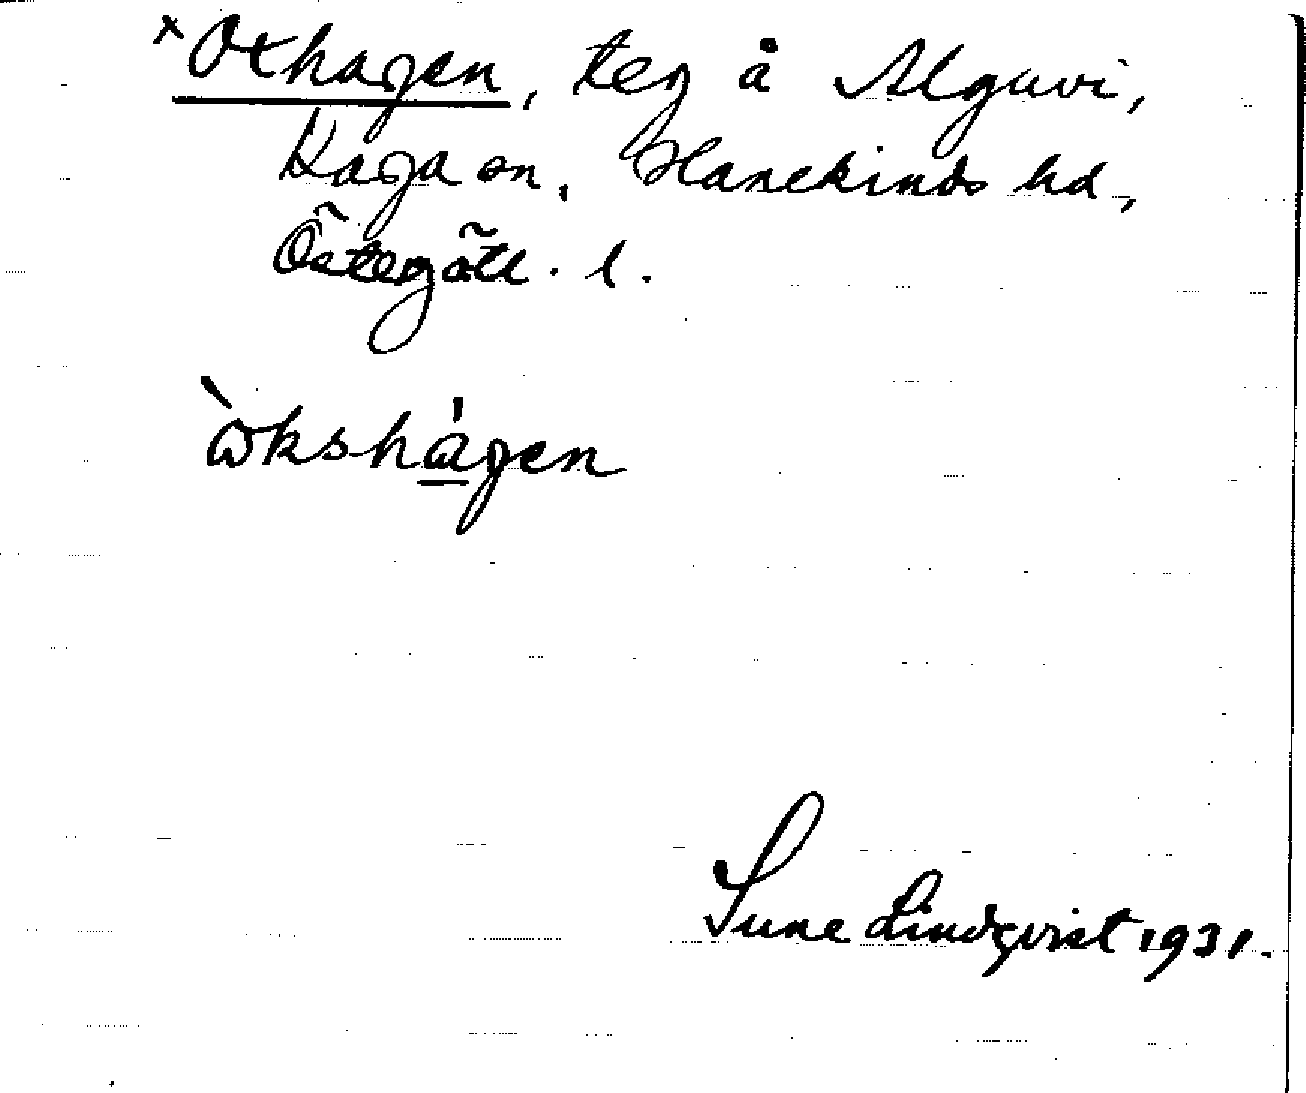 x Oxhagen, teg å Alguvi,
Kaga sn, Hanekinds hd,
Östergötl. l.
ὼkshágen
Sune Lindqvist 1931.